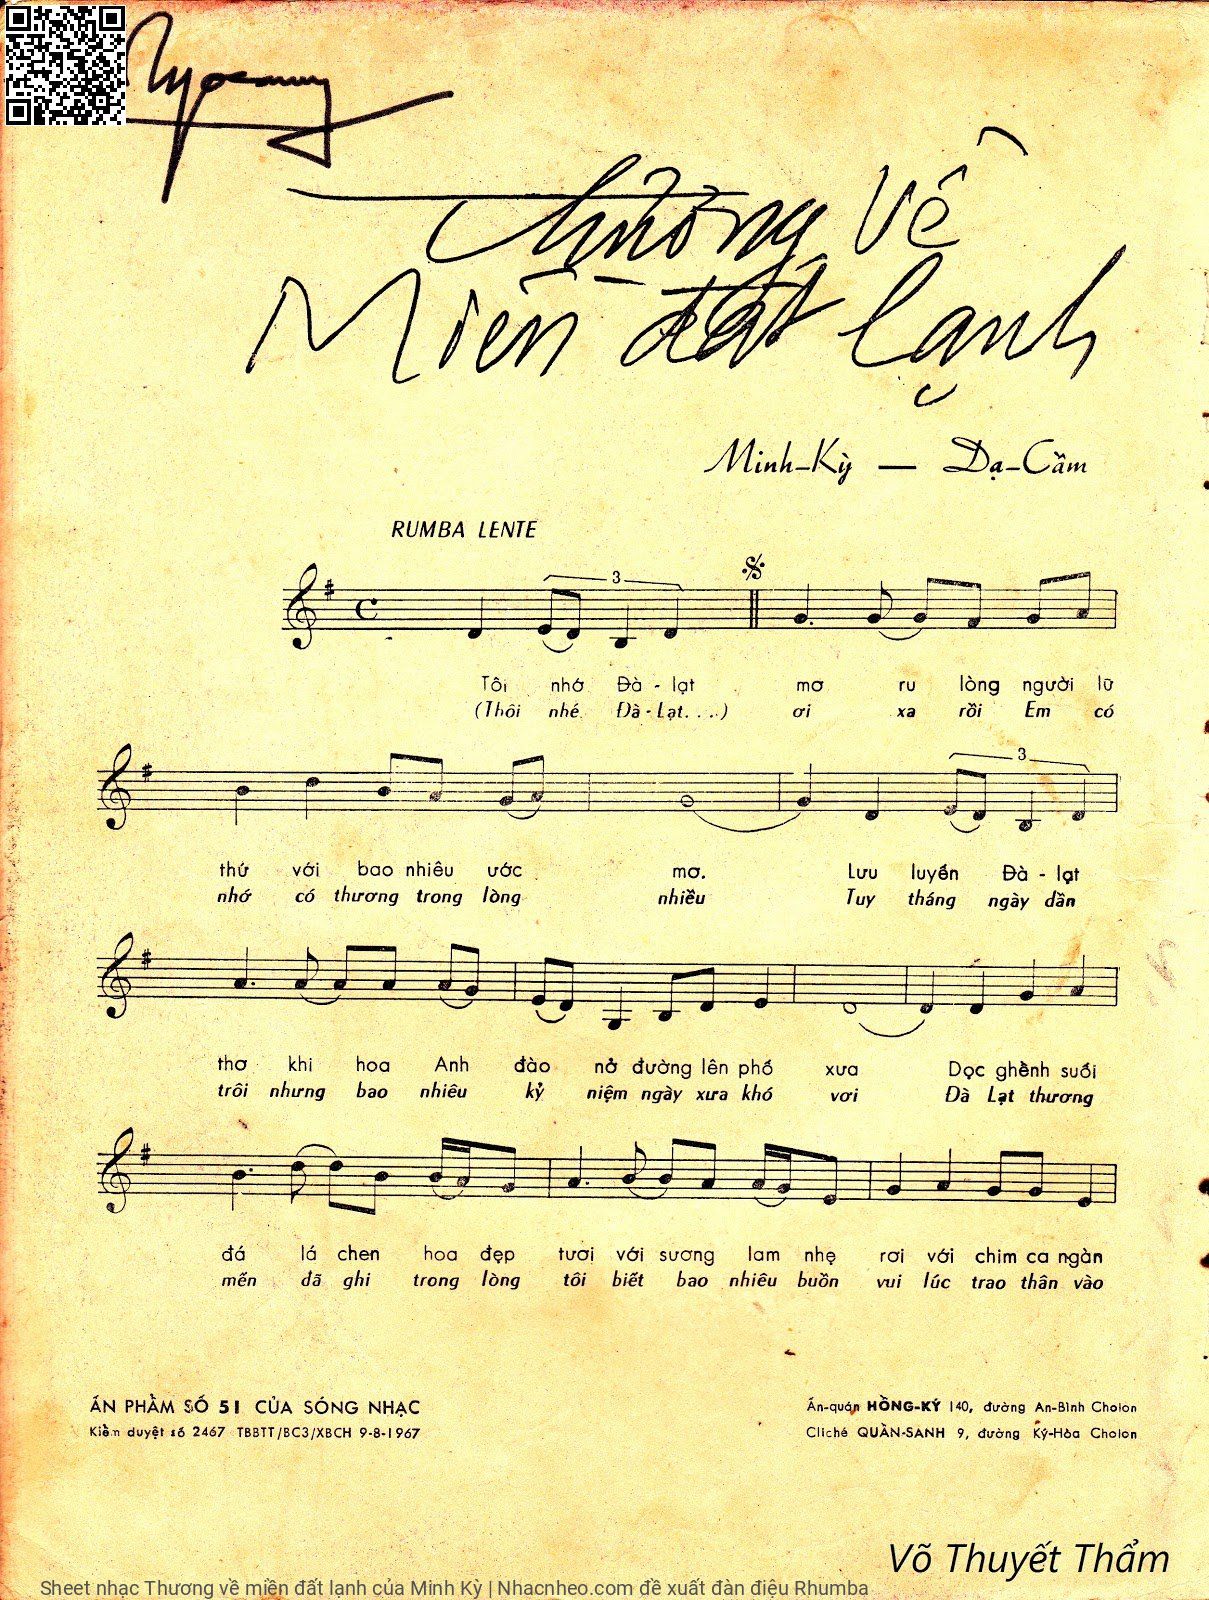 Thương về
Miền đất lạnh
Minh-Kỳ — Dạ-Cầm
RUMBA LENTE
3
Tôi nhớ Đà - lạt mơ ru lòng người lữ
(Thôi nhé Đà-Lạt....) ơi xa rồi Em có
3
thứ với bao nhiêu ước mơ. Lưu luyến Đà - lạt
nhớ có thương trong lòng nhiều Tuy tháng ngày dần
thơ khi hoa Anh đào nở đường lên phố xưa Dọc ghềnh suối
trôi nhưng bao nhiêu kỷ niệm ngày xưa khó vơi Đà Lạt thương
đá lá chen hoa đẹp tươi với sương lam nhẹ rơi với chim ca ngàn
mến đã ghi trong lòng tôi biết bao nhiêu buồn vui lúc trao thân vào
ẤN PHẨM SỐ 51 CỦA SÓNG NHẠC
Kiểm duyệt số 2467 TBBTT/BC3/XBCH 9-8-1967
Ấn-quán HỒNG-KÝ 140, đường An-Bình Cholon
Cliché QUẦN-SANH 9, đường Ký-Hòa Cholon
Võ Thuyết Thẩm
Sheet nhạc Thương về miền đất lạnh của Minh Kỳ | Nhacnheo.com đề xuất đàn điệu Rhumba